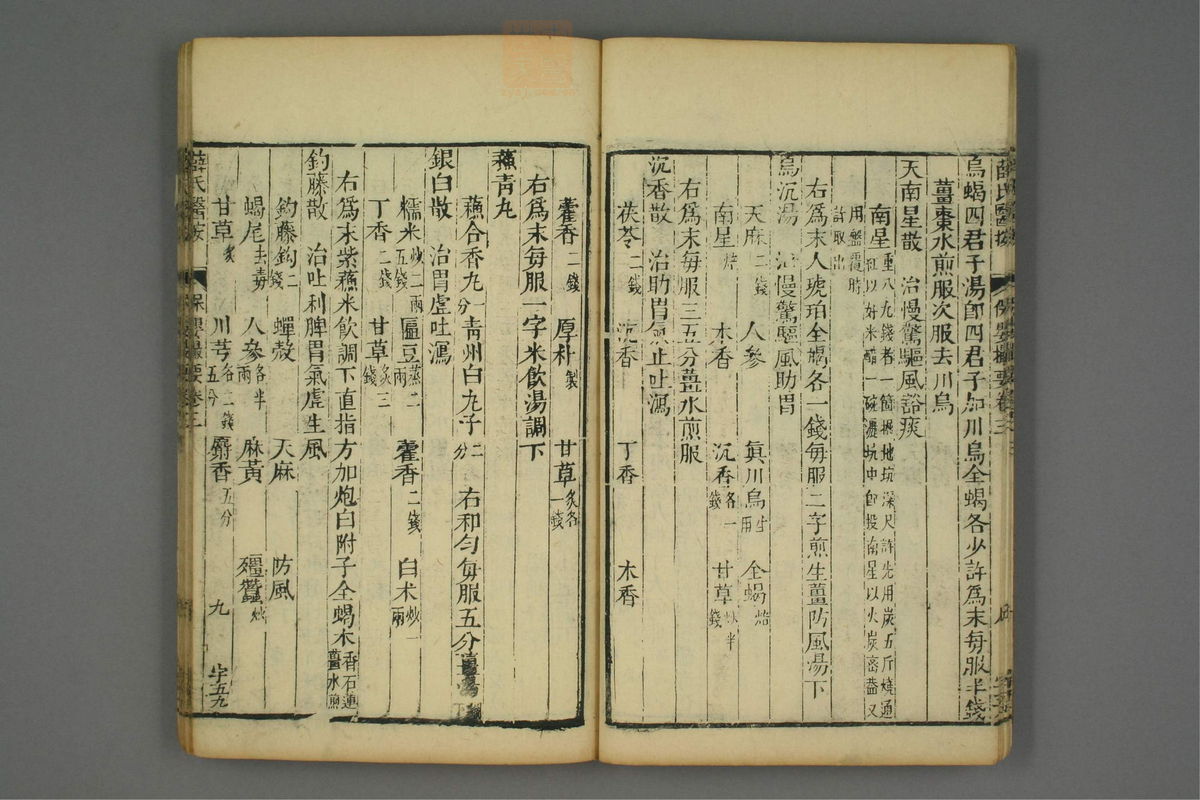 烏蝎四君子湯即四君子加川烏全蝎各少許為末每服半錢
薑棗水煎服次服去川烏
天南星散　治慢驚驅風豁痰
南星重八九錢者一箇掘地坑深尺許先用炭五斤燒通
紅以好米醋一碗灑坑中即投南星以火炭密蓋又
用盤覆時
許取出
右為末人琥珀全蝎各一錢每服二字煎生薑防風湯下
烏沉湯　治慢驚驅風助胃
天麻二錢　人參　真川烏生用　全蝎焙
南星焙　木香　沉香各一錢　甘草炒半錢
右為末每服三五分薑水煎服
沉香散　治助胃氣止吐瀉
茯苓二錢　沉香　丁香　木香
藿香二錢　厚朴製　甘草炙各一錢
右為末每服一字米飲湯調下
蘇青丸
蘇合香丸一分　青州白丸子二分　右和勻每服五分薑湯下
銀白散　治胃虛吐瀉
糯米炒二兩五錢　匾豆蒸二兩　藿香二錢　白朮炒一兩
丁香二錢　甘草炙三錢
右為末紫蘇米飲調下直指方加炮白附子全蝎木香石蓮薑水煎
釣藤散　治吐利脾胃氣虛生風
釣藤鈎二錢　蟬殼　天麻　防風
蝎尾去毒　人參各半兩　麻黃　殭蠶炒
甘草炙　川芎各二錢五分　麝香五分
薛氏醫按　保嬰撮要卷三　九　字五九